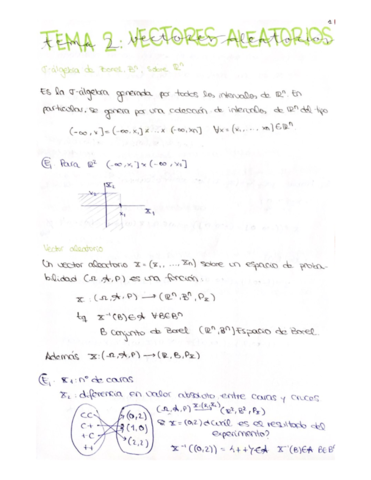 TEMA 2: VECTORES ALEATORIOS
σ-álgebra de Borel Bⁿ, sobre ℝⁿ
Es la σ-álgebra generada por todos los intervalos de ℝⁿ. En
particular, se genera por una colección de intervalos, de ℝⁿ del tipo
(-∞, x] = (-∞, x₁] x ... x (-∞, xn] ∀x = (x₁, ..., xn) ∈ ℝⁿ
Ej Para ℝ² (-∞, x₁] x (-∞, x₂]
x₂
x₂
x₁
x₁
Vector aleatorio
Un vector aleatorio x = (x₁, ..., xn) sobre un espacio de proba-
bilidad (Ω, A, P) es una función:
x : (Ω, A, P) → (ℝⁿ, Bⁿ, Px)
tq x⁻¹(B) ∈ A ∀B ∈ Bⁿ
B conjunto de Borel (ℝⁿ, Bⁿ) Espacio de Borel
Además x : (Ω, A, P) → (ℝ, B, Px)
Ej x₁: nº de caras
x₂: diferencia en valor absoluto entre caras y cruces
CC (0,2)
C+ (1,0)
+C (2,2)
++
(Ω, A, P) (ℝ², B², Px)
si x = (0,2) ¿Cuál es el resultado del
experimento?
x⁻¹((0,2)) = {++} ∈ A x⁻¹(B) ∈ A B ∈ B²